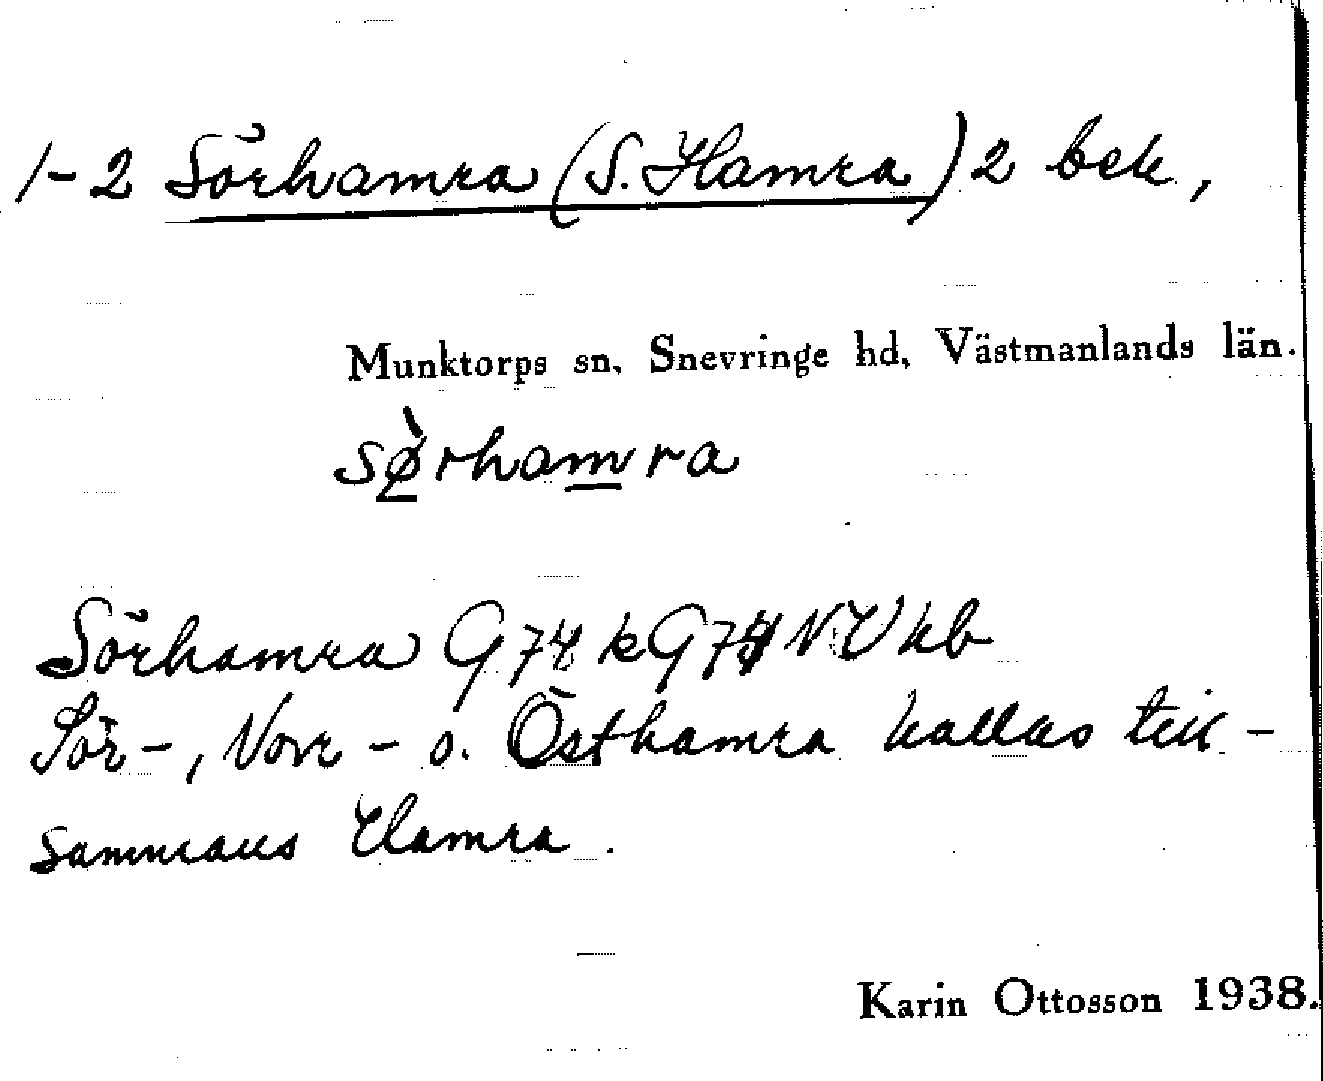 1-2 Sörhamra (S. Hamra) 2 bek,
Munktorps sn, Snevringe hd, Västmanlands län.
sø̀rhamra
Sörhamra G74 k G74 NV kb
Sör-, Norr- o. Östhamra kallas till-
sammans Hamra.
Karin Ottosson 1938.